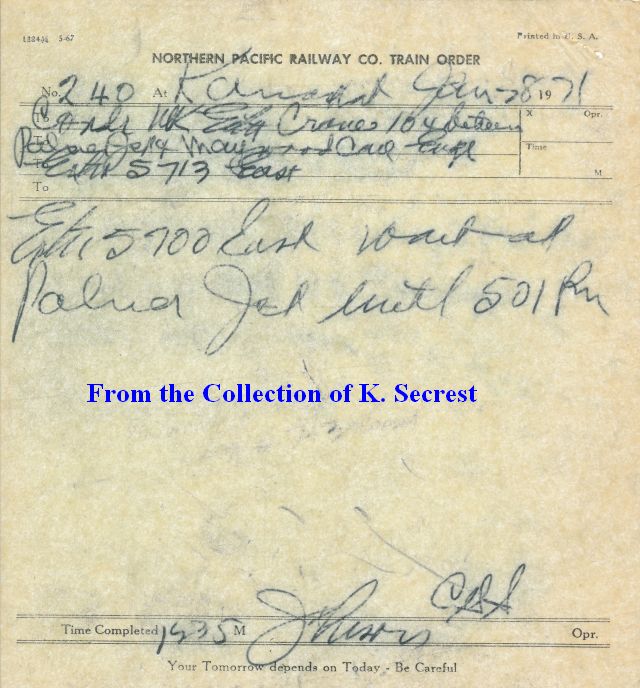 1284½ 5-67 Printed in U. S. A.
NORTHERN PACIFIC RAILWAY CO. TRAIN ORDER
No. 240 At Jan 28 1971
To C&E Wk Extra Crane 10 between X Opr.
To Palmer Jct Maywood Care Time
To Extra 5713 East M
To
Extra 5700 East wait at
Palmer Jct until 501 Pm
From the Collection of K. Secrest
Time Completed M Opr.
Your Tomorrow depends on Today - Be Careful